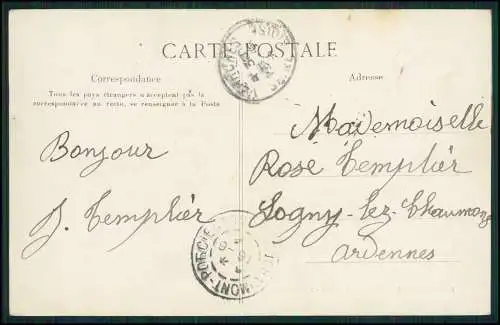 CARTE POSTALE
Correspondance
Tous les pays étrangers n'acceptent pas la
correspondance au recto, se renseigner à la Poste
Adresse
Bonjour
J. Templier
Mademoiselle
Rose Templier
Logny-lez-Chaumont
Ardennes